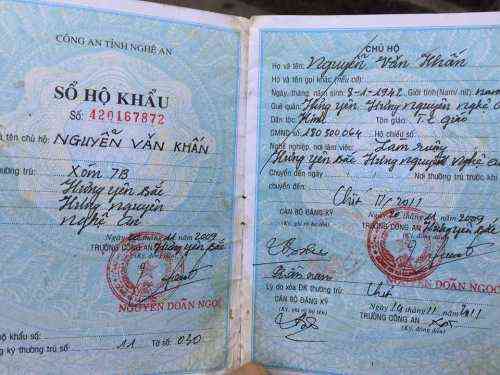 CÔNG AN TỈNH NGHỆ AN
SỔ HỘ KHẨU
Số: 420167872
tên chủ hộ: NGUYỄN VĂN KHẤN
thường trú: Xóm 7B
Hưng yên Bắc
Hưng nguyên
Nghệ an
Ngày 20 tháng 11 năm 2009
TRƯỞNG CÔNG AN Hưng yên Bắc
(Ký, đóng dấu)
NGUYỄN DOÃN NGỌC
hộ khẩu số:
ký thường trú số: 11 Tờ số: 030
CHỦ HỘ
Họ và tên: Nguyễn Văn Khấn
Họ và tên gọi khác (nếu có):
Ngày, tháng, năm sinh: 8-1-1942 Giới tính (Nam/ nữ): nam
Quê quán: Hưng yên Hưng nguyên nghệ an
Dân tộc: Kinh Tôn giáo: T.C giáo
CMND số: 180500064 Hộ chiếu số:
Nghề nghiệp, nơi làm việc: Làm ruộng
Hưng yên Bắc Hưng nguyên Nghệ an
Chuyển đến ngày Nơi thường trú trước khi
chuyển đến:
Chết 11/2011
Ngày 20 tháng 11 năm 2009
CÁN BỘ ĐĂNG KÝ
(Ký, ghi rõ họ tên)
TRƯỞNG CÔNG AN Hưng yên Bắc
(Ký, đóng dấu)
NGUYỄN DOÃN NGỌC
Lý do xóa ĐK thường trú: Chết
CÁN BỘ ĐĂNG KÝ
(Ký, ghi rõ họ tên)
Ngày 14 tháng 11 năm 2011
TRƯỞNG CÔNG AN
(Ký, đóng dấu)